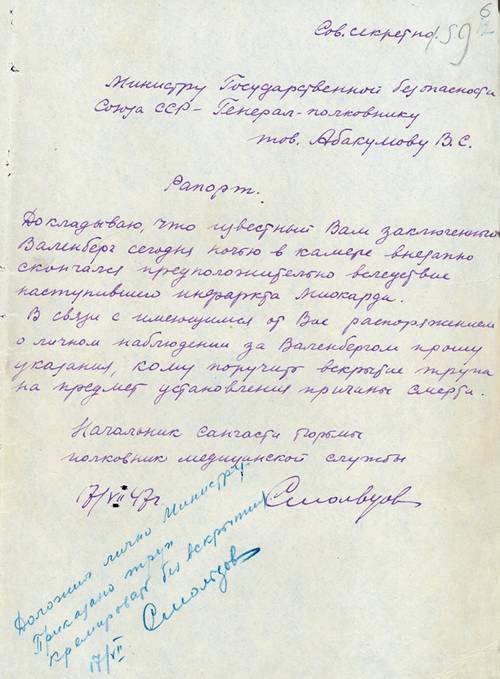 6
Сов. секретно. 59
12
Министру Государственной безопасности
Союза ССР – Генерал-полковнику
тов. Абакумову В.С.
Рапорт.
Докладываю, что известный Вам заключенный
Валенберг сегодня ночью в камере внезапно
скончался предположительно вследствие
наступившего инфаркта миокарда.
В связи с имеющимся от Вас распоряжением
о личном наблюдении за Валенбергом прошу
указания, кому поручить вскрытие трупа
на предмет установления причины смерти.
Начальник санчасти тюрьмы
полковник медицинской службы
17/VII 47г Смольцов
Доложил лично Министру.
Приказано труп
кремировать без вскрытия
17/VII Смольцов